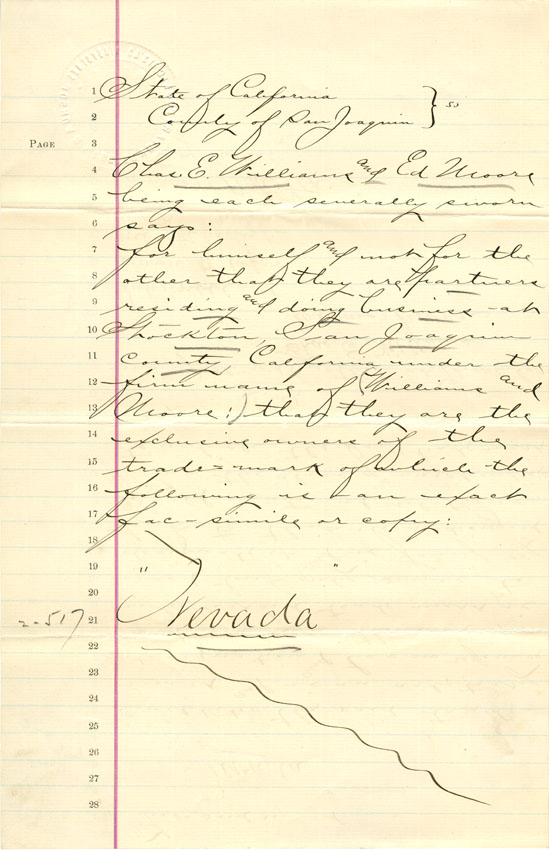 PAGE
1 State of California } ss
2 County of San Joaquin
3
4 Chas E. Williams and Ed Moore
5 being each severally sworn
6 says:
7 for himself and not for the
8 other that they are partners
9 residing and doing business at
10 Stockton, San Joaquin
11 County, California under the
12 firm name of (Williams and
13 Moore:) that they are the
14 exclusive owners of the
15 trade=mark of which the
16 following is an exact
17 fac-simile or copy:
18
19 " "
20
2-517 21 Nevada
22
23
24
25
26
27
28